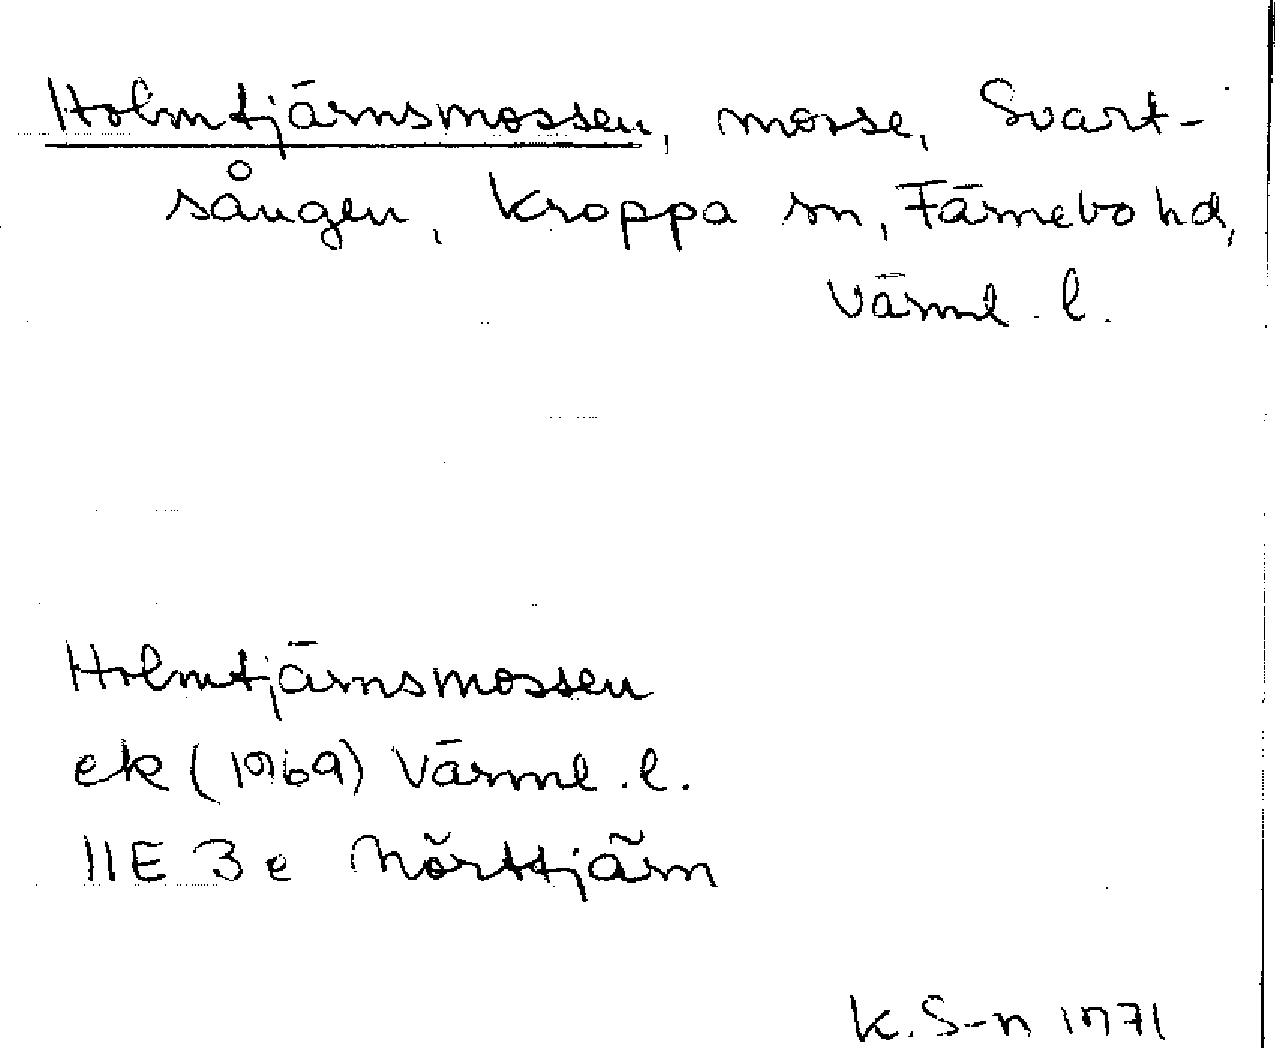 Holmtjärnsmossen, mosse, Svart-
sången, Kroppa sn, Färnebo hd,
Värml. l.
Holmtjärnsmossen
ek (1969) Värml. l.
11E 3e Mörttjärn
K. S-n 1971